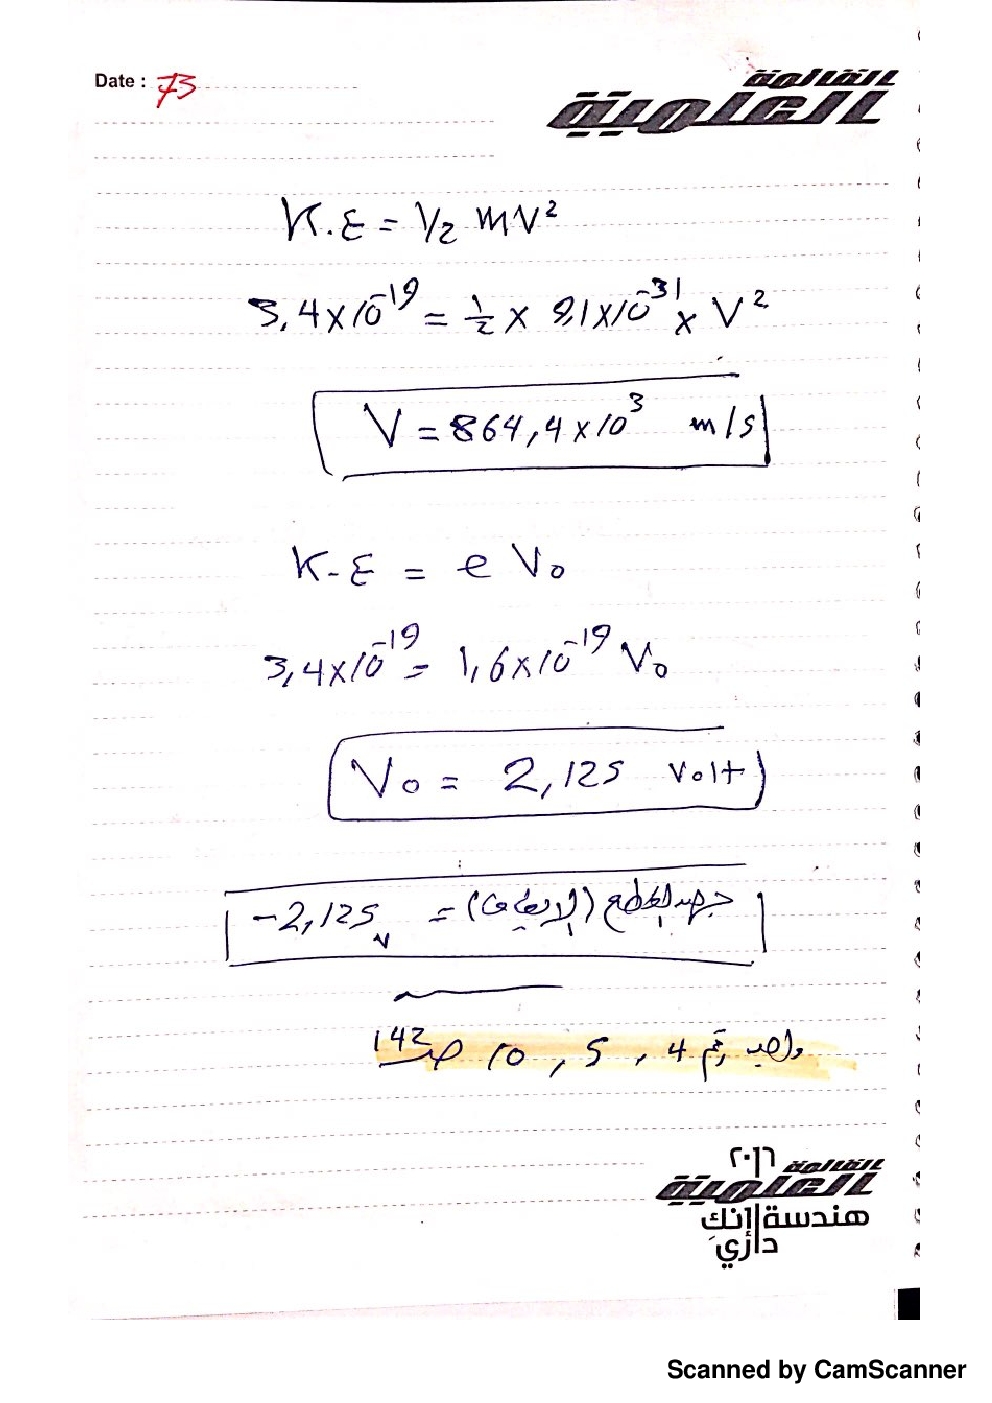 Date : 73
القائمة
العلمية
K.E = 1/2 mV²
3,4×10⁻¹⁹ = 1/2 × 9,1×10⁻³¹ × V²
V = 864,4×10³ m/s
K.E = e V₀
3,4×10⁻¹⁹ = 1,6×10⁻¹⁹ V₀
V₀ = 2,125 Volt
جهد القطع (الإيقاف) = -2,125 V
واجب رقم 4 , 5 , 10 صـ 142
٢٠١٦ القائمة
العلمية
هندسة إنك
داري
Scanned by CamScanner